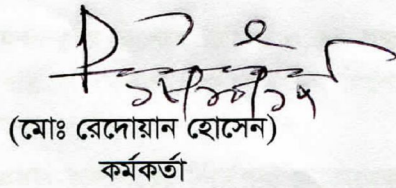 (মোঃ রেদোয়ান হোসেন)
কর্মকর্তা